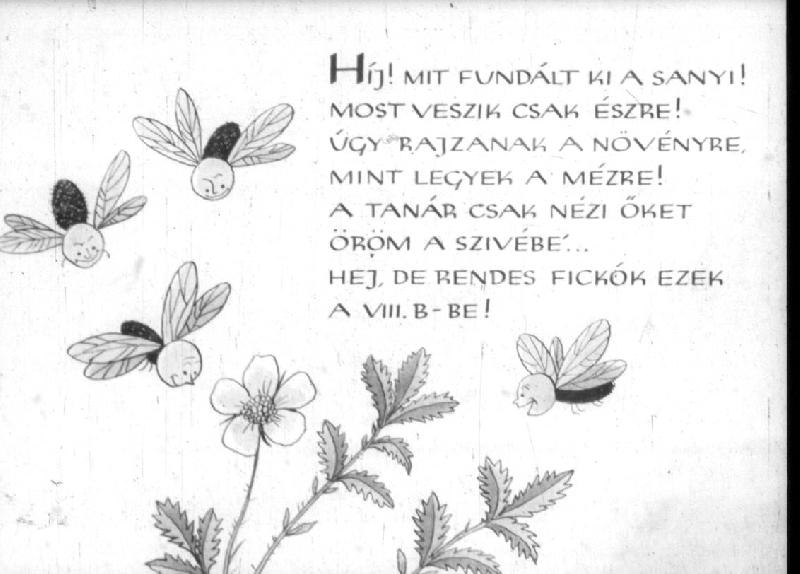 HÍJ! MIT FUNDÁLT KI A SANYI!
MOST VESZIK CSAK ÉSZRE!
ÚGY RAJZANAK A NÖVÉNYRE,
MINT LEGYEK A MÉZRE!
A TANÁR CSAK NÉZI ŐKET
ÖRÖM A SZIVÉBE'...
HEJ, DE RENDES FICKÓK EZEK
A VIII. B-BE!